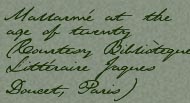 Mallarmé at the
age of twenty
(Courtesy Bibliotèque
Littéraire Jaques
Doucet, Paris)